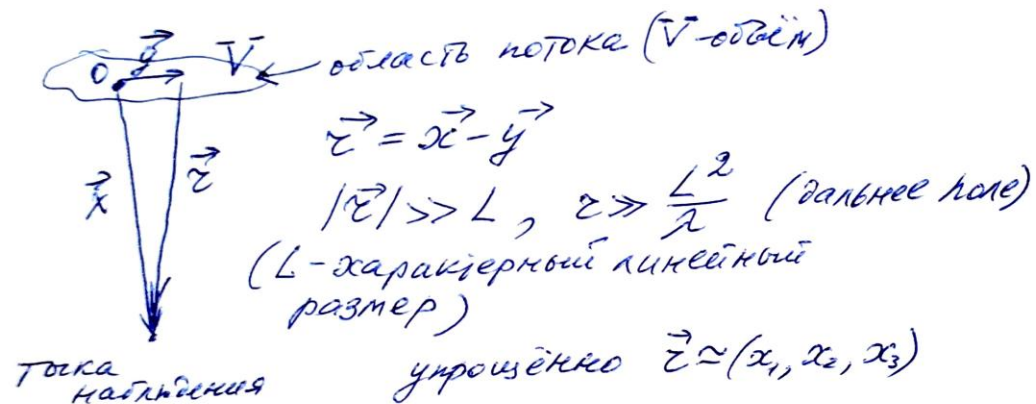 O $\vec{y}$ V̄ область потока (V̄-объём)
$\vec{r} = \vec{x} - \vec{y}$
$\vec{x}$ $\vec{r}$
$|\vec{r}| \gg L$, $r \gg \frac{L^2}{\lambda}$ (дальнее поле)
(L-характерный линейный
размер)
точка
наблюдения
упрощённо $\vec{r} \simeq (x_1, x_2, x_3)$